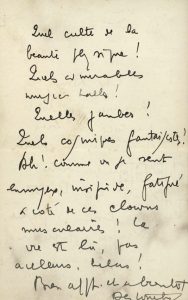 Quel culte de la
beauté physique !
Quels admirables
music halls !
Quelles jambes !
Quels comiques fantaisistes.
Ah ! comme on se sent
ennuyeux, insipide, fatigué
à côté de ces clowns
musculaires ! La
vie est là, pas
ailleurs, hélas !
Bien aff. et a bientot